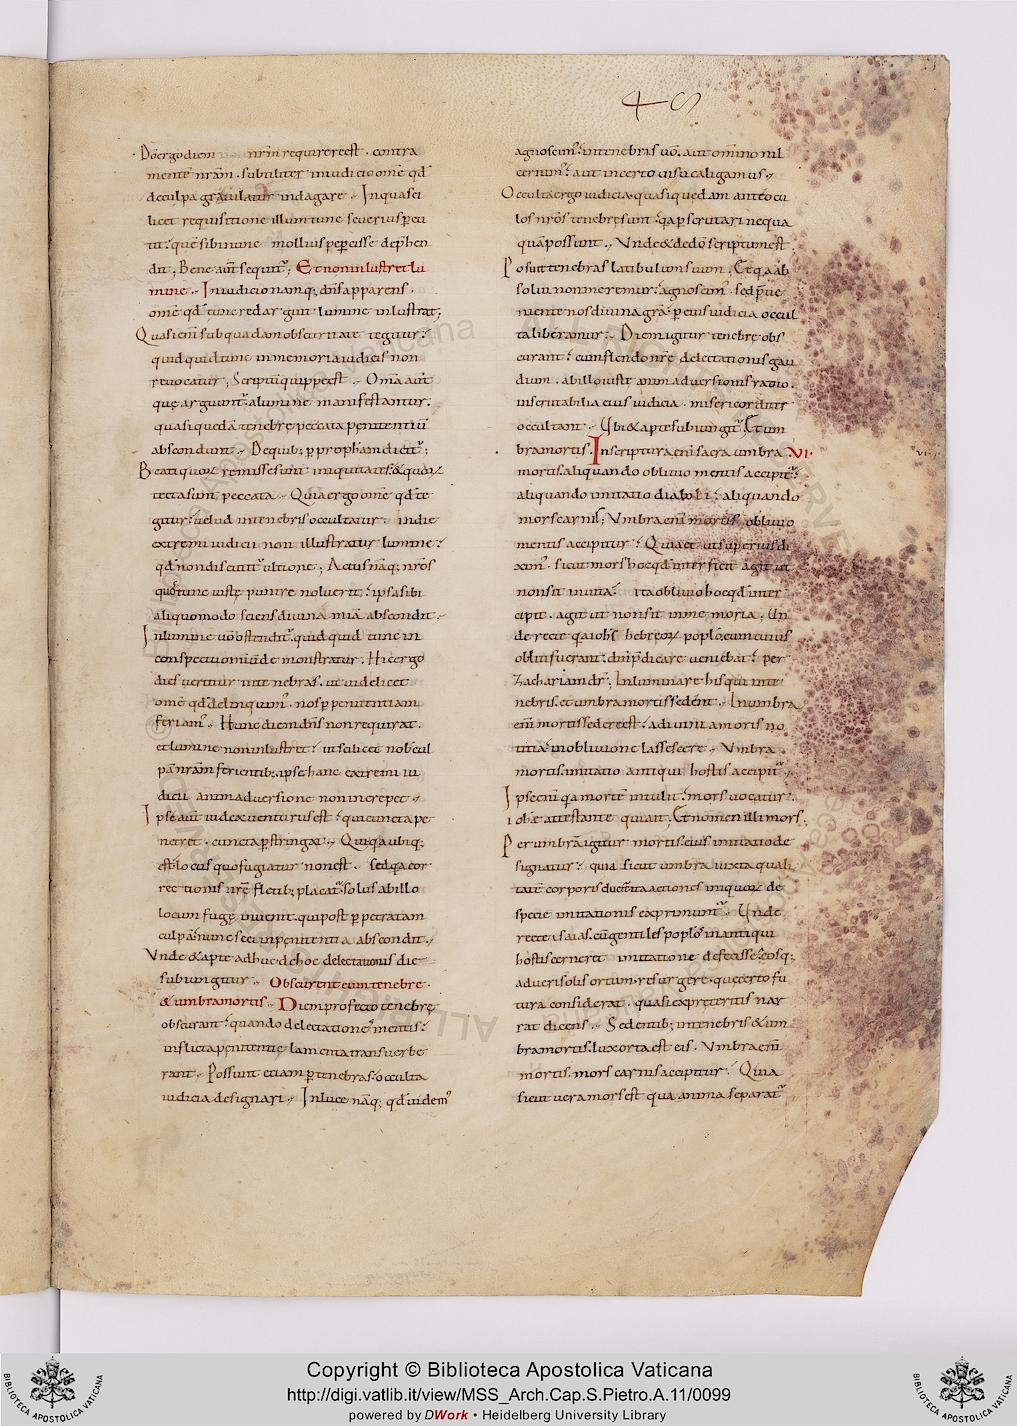 48
Dō ergo diem nrm̄ requirere est · contra
mentē nrām · subtiliter in iudicio om̄e qd̄
de culpa gratulatur indagare · In qua sci
licet requisitione illum tunc severius p̄cu
tit · quē sibi nunc mollius pepercisse dep̄hen
dit ; Bene aut̄ sequit̄ ; Et non inlustret lu
mine · In iudicio namq; dn̄s apparens ·
om̄e qd̄ tunc redarguit lumine inlustrat ;
Quasi eni sub quadam obscuritate tegitur ·
quidquid tunc in memoria iudicis non
revocatur ; Scriptū quippe est · Omīa aut̄
quę arguunt̄ · a lumine manifestantur ·
quasi quedā tenebrę peccata pęnitentiū
abscondunt · De quib; p̄ prophām dicit̄ ;
Beati quoꝝ remisse sunt iniquitates · & quoꝝ
tecta sunt peccata · Quia ergo om̄e qd̄ te
gitur · velud in tenebris occultatur · in die
extremi iudicii non illustratur lumine ·
qd̄ non discutit̄ ultione ; Actus nāq; nr̄os
quos tunc iuste punire noluerit · ipsa sibi
aliquo modo sciens divina mīa abscondit ·
In lumine vō ostendit̄ · quidquid tunc in
conspectu omium demonstratur · Hic ergo
dies vertitur in tenebras · ut videlicet
om̄e qd̄ delinquim̄ · nos p̄ penitentiam
feriam̄ · Hunc diem dn̄s non requirat ·
et lumine non inlustret · ut scilicet nob̄ cul
pā nrām ferientib; · ipse hanc extremi iu
dicii animadversione non increpet ·
Ipse aut̄ iudex venturus est · qui cuncta pe
netret · cuncta p̄stringat · Qui qa ubiq;
est · locus quo fugiatur non est · Sed qa cor
rectionis nrę fletib; placat̄ · solus ab illo
locum fugę invenit · qui post p̄petratam
culpā · nunc se ei in pęnitentia abscondit ·
Unde & apte adhuc de hoc delectationis die
subiungitur · Obscurent eum tenebre ·
& umbra mortis · Diem profecto tenebrę
obscurant · quando delectatione mentis ·
inflicta pęnitentię lamenta transverbe
rant · Possunt etiam p̄ tenebras · occulta
iudicia designari · In luce nāq; qd̄ videm̄
agnoscim̄ · in tenebris vō · aut omīno nil
cernim̄ · aut incerto visu caligamus ·
Occulta ergo iudicia · quasi quedam ante ocu
los nr̄os tenebrę sunt · qa p̄scrutari nequa
quā possunt · Unde & de dō scriptum est ·
Posuit tenebras latibulum suum ; Et qa ab
solui non meremur · agnoscim̄ · sed p̄ve
niente nos divina grā · p̄ eius iudicia occul
ta liberamur · Diem igitur tenebrę obs
curant · cum flendo nr̄e delectationis gau
dium · ab illo iustę animadversionis radio ·
inscrutabilia eius iudicia · misericordit̄
occultant · Ubi & apte subiungit̄ · Et um
bra mortis · In scriptura eni sacra umbra VI ·
mortis · aliquando oblivio mentis accipit̄ ·
aliquando imitatio diaboli · aliquando
mors carnis ; Umbra eni mortis · oblivio
mentis accipitur · Quia et ut superius di
xim̄ · sicut mors hoc qd̄ interficit agit ut
non sit in vita · ita oblivio hoc qd̄ inter
cipit · agit ut non sit in memoria · Un
de recte qa iohs̄ hebręoꝝ poplō · eum cuius
obliti fuerant · dm̄ p̄dicare veniebat · per
zachariam dr̄ ; Inluminare his qui in te
nebris · et umbra mortis sedent · In umbra
eni mortis sedere est · a divini amoris no
titia · in oblivione lassescere · Umbra
mortis · imitatio antiqui hostis accipit̄ ·
Ipse eni qa mortē intulit · mors vocatur ·
iohe attestante qui ait · Et nomen illi mors ·
Per umbrā igitur mortis · eius imitatio de
signatur · quia sicut umbra iuxta quali
tatē corporis ducit̄ · ita actiones iniquoꝝ de
specie imitationis exprimunt̄ · Unde
recte isaias · cū gentiles poplos in antiqui
hostis cerneret imitatione defecisse · eosq;
ad veri solis ortum · resurgere · quę certo fu
tura considerat · quasi ex pręteritis nar
rat dicens · Sedentib; in tenebris & um
bra mortis · lux orta est eis · Umbra eni
mortis · mors carnis accipitur · Quia
sicut vera mors est qua anima separat̄
· VI ·
Copyright © Biblioteca Apostolica Vaticana
http://digi.vatlib.it/view/MSS_Arch.Cap.S.Pietro.A.11/0099
powered by DWork • Heidelberg University Library
BIBLIOTECA APOSTOLICA VATICANA
BIBLIOTECA APOSTOLICA VATICANA